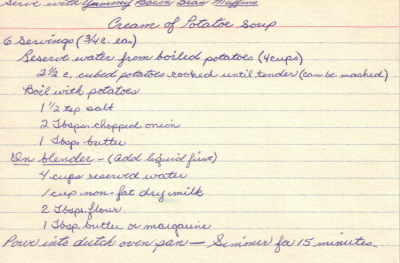 Serve with Yummy Bacon Bran Muffins
Cream of Potatoe Soup
6 Servings (3/4 c. ea)
Reserve water from boiled potatoes (4 cups)
2 1/2 c. cubed potatoes cooked until tender (can be mashed)
Boil with potatoes
1 1/2 tsp salt
2 Tbsps. chopped onion
1 Tbsp. butter
In blender - (add liquid first)
4 cups reserved water
1 cup non-fat dry milk
2 Tbsps. flour
1 Tbsp. butter or margarine
Pour into dutch oven pan — Simmer for 15 minutes.